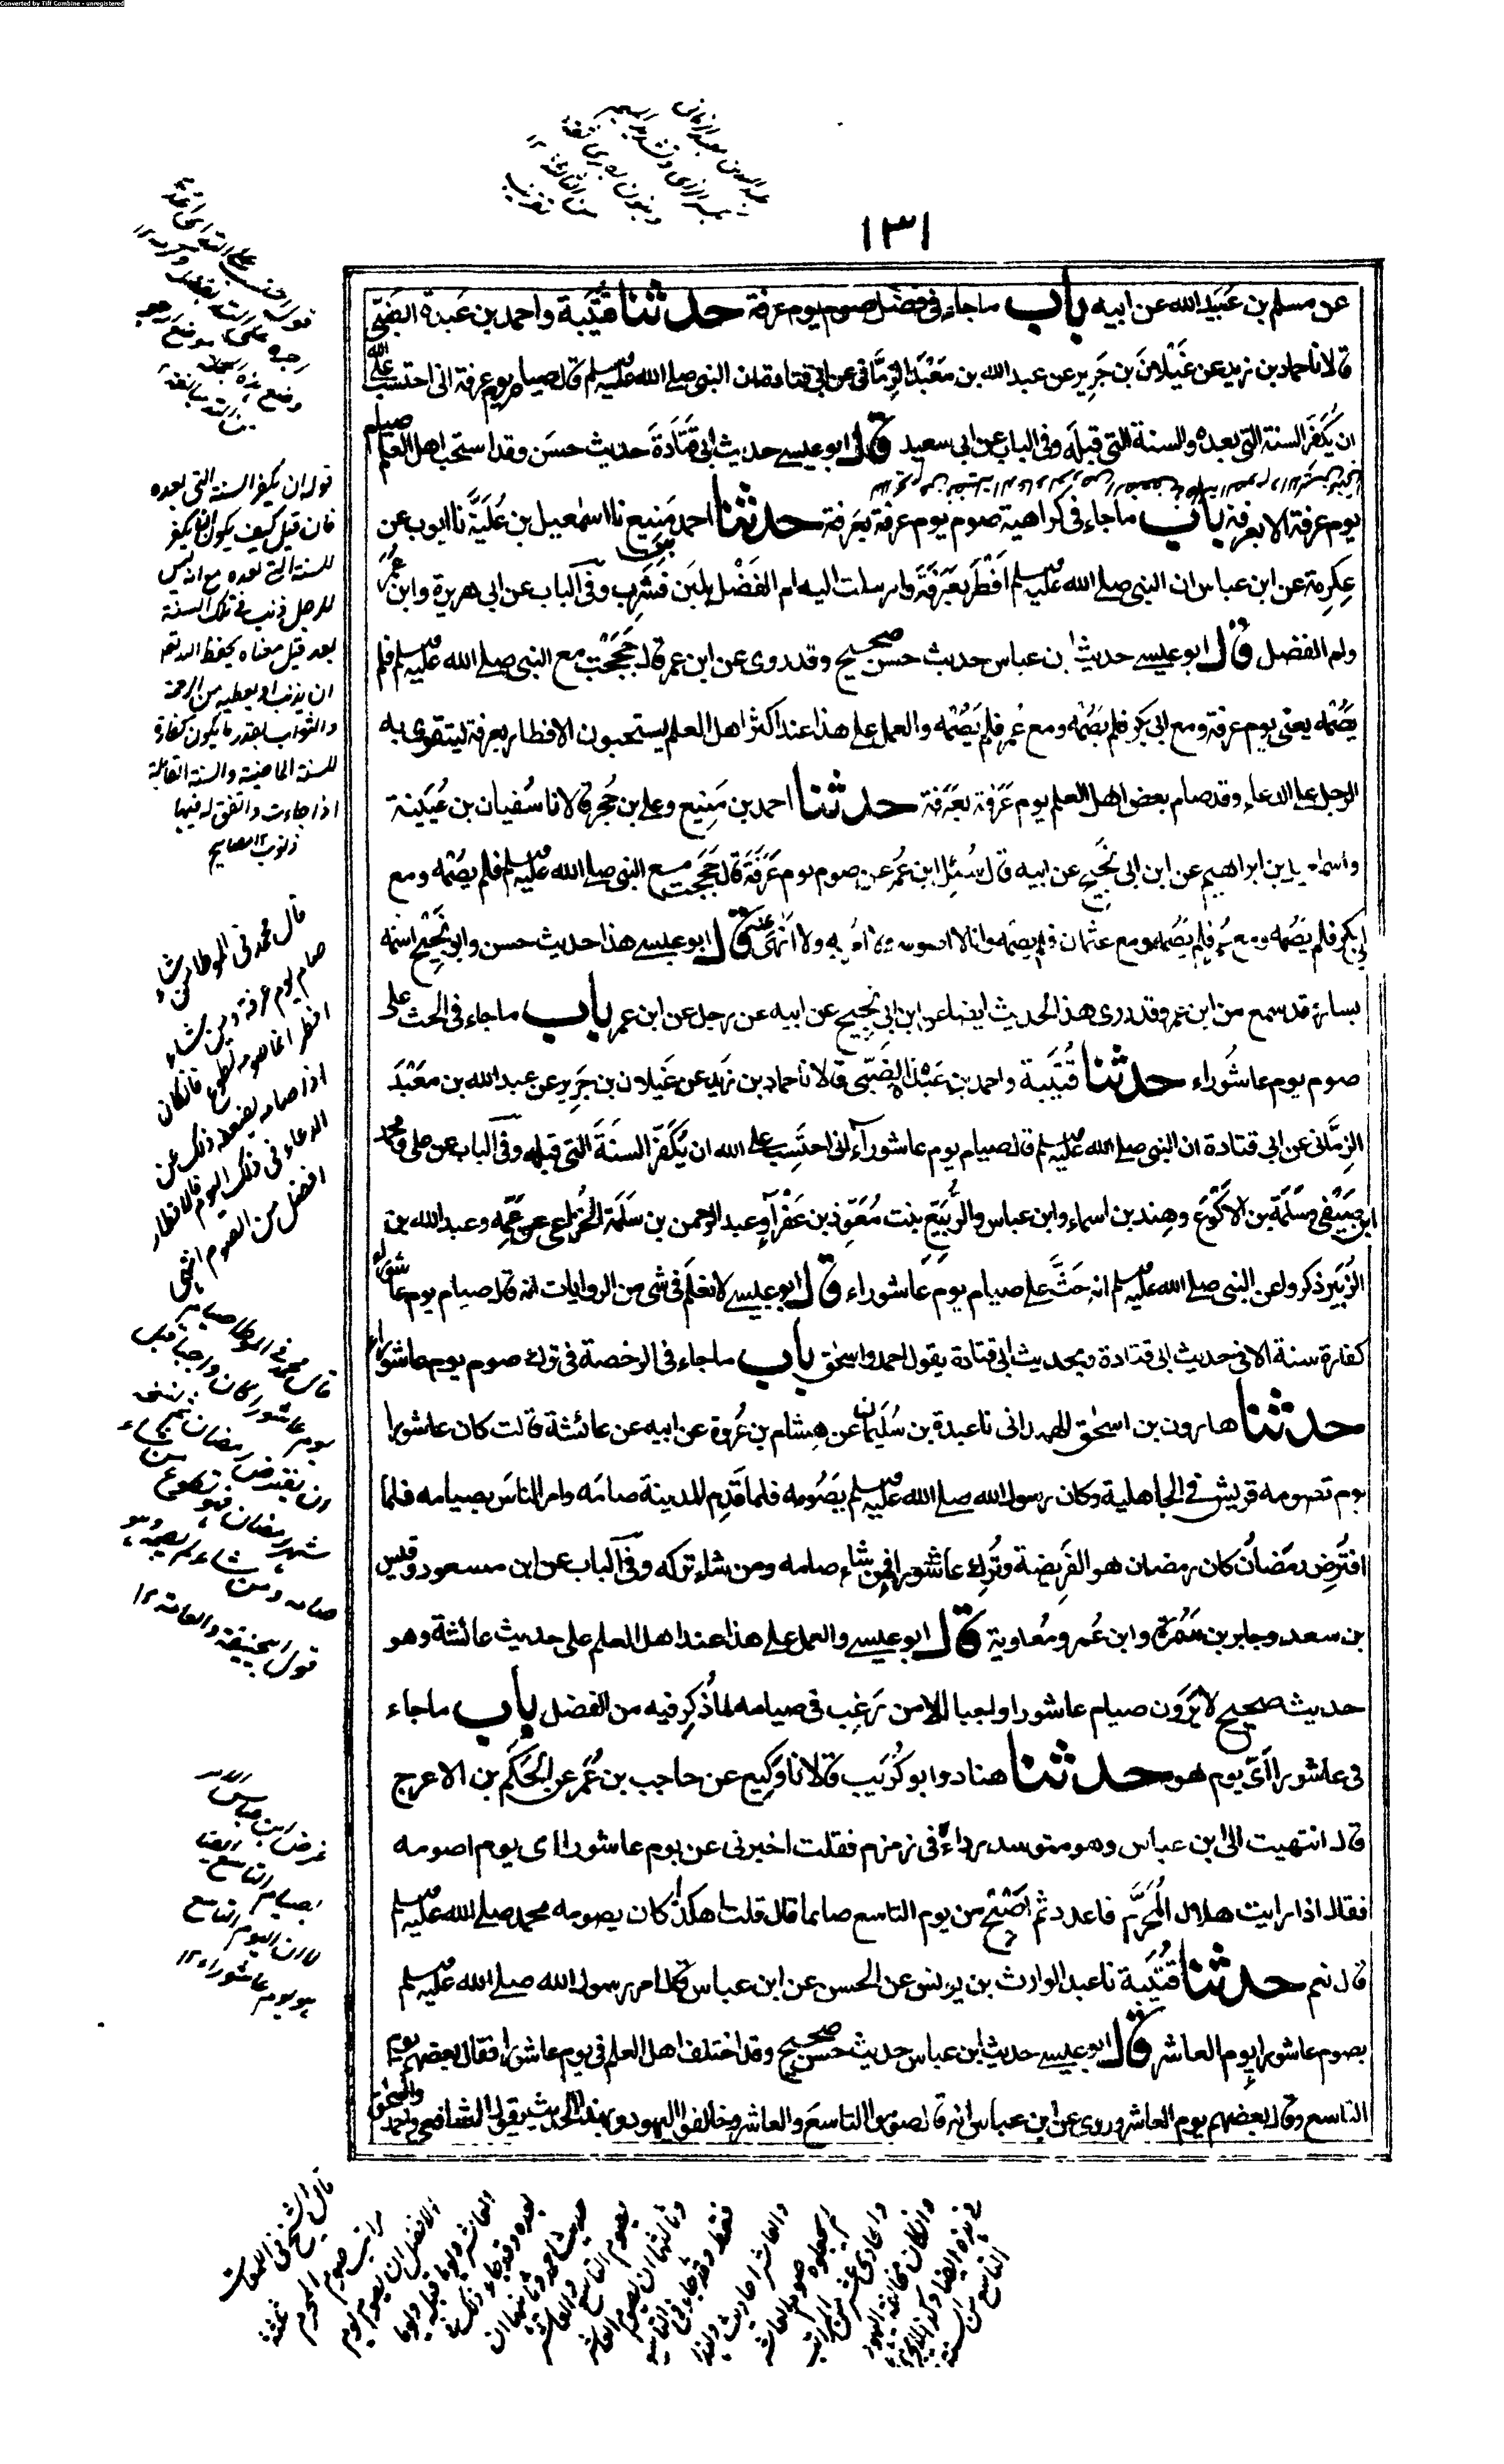 Converted by Tiff Combine - unregistered
١٣١
عن مسلم بن عبيد الله عن ابيه باب ماجاء فى فضل صوم يوم عرفة حدثنا قتيبة واحمد بن عبدة الضبى
قالا نا حماد بن زيد عن غيلان بن جرير عن عبد الله بن معبد الزمانى عن ابى قتادة ان النبى صلى الله عليه وسلم قال صيام يوم عرفة انى احتسب على الله
ان يكفر السنة التى بعده والسنة التى قبله وفى الباب عن ابى سعيد قال ابو عيسى حديث ابى قتادة حديث حسن وقد استحب اهل العلم صيام
يوم عرفة الا بعرفة باب ماجاء فى كراهية صوم يوم عرفة بعرفة حدثنا احمد بن منيع نا اسمعيل بن علية نا ايوب عن
عكرمة عن ابن عباس ان النبى صلى الله عليه وسلم افطر بعرفة وارسلت اليه ام الفضل بلبن فشرب وفى الباب عن ابى هريرة وابن عمر
وام الفضل قال ابو عيسى حديث ابن عباس حديث حسن صحيح وقد روى عن ابن عمر قال حججت مع النبى صلى الله عليه وسلم فلم
يصمه يعنى يوم عرفة ومع ابى بكر فلم يصمه ومع عمر فلم يصمه والعمل على هذا عند اكثر اهل العلم يستحبون الافطار بعرفة ليتقوى به
الرجل على الدعاء وقد صام بعض اهل العلم يوم عرفة بعرفة حدثنا احمد بن منيع وعلى بن حجر قالا نا سفيان بن عيينة
واسماعيل بن ابراهيم عن ابن ابى نجيح عن ابيه قال سئل ابن عمر عن صوم يوم عرفة قال حججت مع النبى صلى الله عليه وسلم فلم يصمه ومع
ابى بكر فلم يصمه ومع عمر فلم يصمه ومع عثمان فلم يصمه وانا لا اصومه ولا امر به ولا انهى عنه قال ابو عيسى هذا حديث حسن وابو نجيح اسمه
يسار قد سمع من ابن عمر وقد روى هذا الحديث ايضا عن ابن ابى نجيح عن ابيه عن رجل عن ابن عمر باب ماجاء فى الحث على
صوم يوم عاشوراء حدثنا قتيبة واحمد بن عبدة الضبى قالا نا حماد بن زيد عن غيلان بن جرير عن عبد الله بن معبد
الزمانى عن ابى قتادة ان النبى صلى الله عليه وسلم قال صيام يوم عاشوراء انى احتسب على الله ان يكفر السنة التى قبله وفى الباب عن على ومحمد
ابن صيفى وسلمة بن الاكوع وهند بن اسماء وابن عباس والربيع بنت معوذ بن عفراء وعبد الرحمن بن سلمة الخزاعى عن عمه وعبد الله بن
الزبير ذكروا عن النبى صلى الله عليه وسلم انه حث على صيام يوم عاشوراء قال ابو عيسى لا نعلم فى شئ من الروايات انه قال صيام يوم عاشوراء
كفارة سنة الا فى حديث ابى قتادة وبحديث ابى قتادة يقول احمد واسحق باب ماجاء فى الرخصة فى ترك صوم يوم عاشوراء
حدثنا هارون بن اسحق الهمدانى نا عبدة بن سليمان عن هشام بن عروة عن ابيه عن عائشة قالت كان عاشورا
يوم تصومه قريش فى الجاهلية وكان رسول الله صلى الله عليه وسلم يصومه فلما قدم المدينة صامه وامر الناس بصيامه فلما
افترض رمضان كان رمضان هو الفريضة وترك عاشورا فمن شاء صامه ومن شاء تركه وفى الباب عن ابن مسعود وقيس
بن سعد وجابر بن سمرة وابن عمر ومعاوية قال ابو عيسى والعمل على هذا عند اهل العلم على حديث عائشة وهو
حديث صحيح لا يرون صيام عاشورا واجبا الا من رغب فى صيامه لما ذكر فيه من الفضل باب ماجاء
فى عاشورا اى يوم هو حدثنا هناد وابو كريب قالا نا وكيع عن حاجب بن عمر عن الحكم بن الاعرج
قال انتهيت الى ابن عباس وهو متوسد رداءه فى زمزم فقلت اخبرنى عن يوم عاشورا اى يوم اصومه
فقال اذا رايت هلال المحرم فاعدد ثم اصبح من يوم التاسع صائما قال قلت اهكذا كان يصومه محمد صلى الله عليه وسلم
قال نعم حدثنا قتيبة نا عبد الوارث عن يونس عن الحسن عن ابن عباس قال امر رسول الله صلى الله عليه وسلم
بصوم عاشورا يوم العاشر قال ابو عيسى حديث ابن عباس حديث حسن صحيح وقد اختلف اهل العلم فى يوم عاشورا فقال بعضهم يوم
التاسع وقال بعضهم يوم العاشر وروى عن ابن عباس انه قال صوموا التاسع والعاشر وخالفوا اليهود وبهذا الحديث يقول الشافعى واحمد واسحق
قوله ان يكفر السنة التى بعده
فان قيل كيف يكون ان يكفر
السنة التى بعده مع انه ليس
للرجل ذنب فى تلك السنة
بعد قيل معناه يحفظ الله تعه
ان يذنب او يعطيه من الرحمة
والثواب بقدر ما يكون كفارة
للسنة الماضية والسنة القابلة
اذا جاءت واتفق له فيها
ذنوب ١٢ مصابيح
قال محمد فى الموطا من شاء
صام يوم عرفة ومن شاء
افطر انما صومه تطوع فان كان
اذا صامه يضعفه ذلك عن
الدعاء فى ذلك اليوم فالافطار
افضل من الصوم انتهى
قال محمد فى الموطا صيام
يوم عاشورا كان واجبا قبل
ان يفترض رمضان ثم نسخه
شهر رمضان فهو تطوع من شاء
صامه ومن شاء لم يصمه وهو
قول ابى حنيفة والعامة ١٢
غرض ابن عباس
بصيام التاسع ايضا
لا ان اليوم التاسع
هو يوم عاشوراء ١٢
قال الشيخ فى اللمعات
مراتب صوم المحرم ثلثة
الافضل ان يصوم يوم
العاشر ويوما قبله ويوما